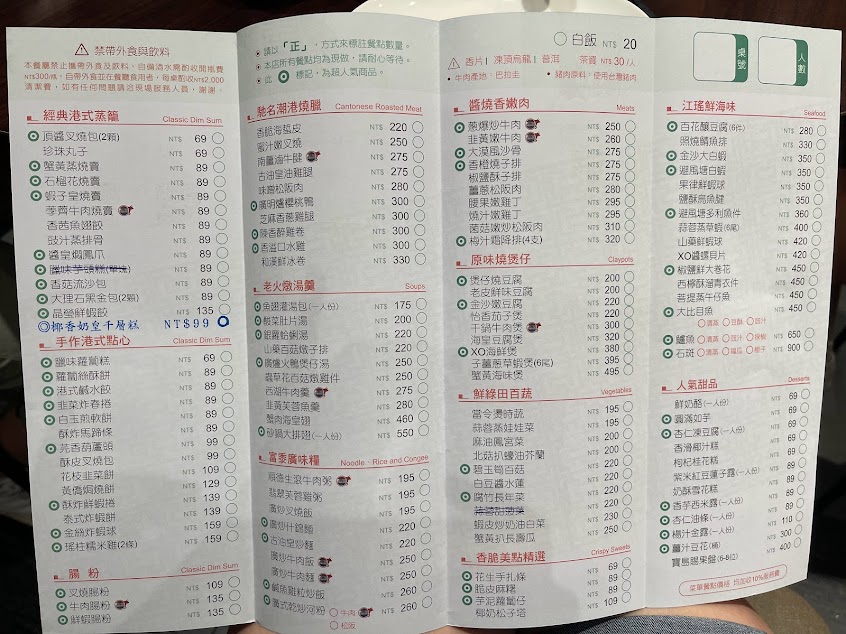 ⚠ 禁帶外食與飲料
本餐廳禁止攜帶外食及飲料，自備酒水需酌收開瓶費
NT$300/瓶，自帶外食並在餐廳食用者，每桌酌收NT$2,000
清潔費，如有任何問題請洽現場服務人員，謝謝。
經典港式蒸籠 Classic Dim Sum
頂醬叉燒包(2顆) NT$ 69
珍珠丸子 NT$ 69
蟹黃蒸燒賣 NT$ 89
石榴花燒賣 NT$ 89
蝦子皇燒賣 NT$ 89
荸薺牛肉燒賣 NT$ 89
香茜魚翅餃 NT$ 89
豉汁蒸排骨 NT$ 89
醬皇燜鳳爪 NT$ 89
臘味芋頭糕(單塊) NT$ 89
香菇流沙包 NT$ 89
大理石黑金包(2顆) NT$ 89
晶瑩鮮蝦餃 NT$ 135
◎椰香奶皇千層糕 NT$99
手作港式點心 Classic Dim Sum
臘味蘿蔔糕 NT$ 69
蘿蔔絲酥餅 NT$ 89
港式鹹水餃 NT$ 89
韭菜炸春捲 NT$ 89
白玉煎軟餅 NT$ 89
酥炸馬蹄條 NT$ 89
芫香葫蘆頭 NT$ 99
酥皮叉燒包 NT$ 99
花枝韭菜餅 NT$ 109
黃僑焗燒餅 NT$ 129
酥炸鮮蝦捲 NT$ 139
泰式炸蝦餅 NT$ 139
金絲炸蝦球 NT$ 159
瑤柱糯米雞(2條) NT$ 159
腸粉 Classic Dim Sum
叉燒腸粉 NT$ 109
牛肉腸粉 NT$ 135
鮮蝦腸粉 NT$ 135
• 請以「正」，方式來標註餐點數量。
• 本店所有餐點均為現做，請耐心等待。
• 此 標記，為超人氣商品。
馳名潮港燒臘 Cantonese Roasted Meat
香脆海蜇皮 NT$ 220
蜜汁嫩叉燒 NT$ 250
南薑滷牛腱 NT$ 275
古油皇油雞腿 NT$ 275
味噌松阪肉 NT$ 280
廣明爐櫻桃鴨 NT$ 300
芝麻香蔥雞腿 NT$ 300
陳香醉雞卷 NT$ 300
香溢口水雞 NT$ 300
和漢鮮冰卷 NT$ 330
老火燉湯羹 Soups
魚翅灌湯包(一人份) NT$ 175
榨菜肚片湯 NT$ 200
銀蘿蛤蜊湯 NT$ 220
山藥百菇燉子排 NT$ 220
廣爐火鴨煲仔湯 NT$ 250
蟲草花百菇燉雞件 NT$ 250
西湖牛肉羹 NT$ 275
韭黃芙蓉魚羹 NT$ 280
蟹肉海皇翅 NT$ 460
砂鍋大排翅(一人份) NT$ 550
富泰廣味糧 Noodle、Rice and Congee
順德生滾牛肉粥 NT$ 195
翡翠芙蓉雞粥 NT$ 195
廣炒叉燒飯 NT$ 195
廣炒什錦麵 NT$ 220
古油皇炒麵 NT$ 220
廣炒牛肉飯 NT$ 250
廣炒牛肉麵 NT$ 250
鹹魚雞粒炒飯 NT$ 260
廣式乾炒河粉 牛肉 NT$ 260
松阪
白飯 NT$ 20
⚠ 香片｜凍頂烏龍｜普洱 茶資 NT$ 30/人
• 牛肉產地：巴拉圭 • 豬肉原料，使用台灣豬肉
醬燒香嫩肉 Meats
蔥爆炒牛肉 NT$ 250
韭黃嫩牛肉 NT$ 260
大漠風沙骨 NT$ 275
香橙燒子排 NT$ 275
椒鹽酥子排 NT$ 275
薑蔥松阪肉 NT$ 280
腰果嫩雞丁 NT$ 295
燒汁嫩雞丁 NT$ 295
菌菇嫩炒松阪肉 NT$ 310
梅汁霜降排(4支) NT$ 320
原味燒煲仔 Claypots
煲仔燒豆腐 NT$ 200
老皮鮮味豆腐 NT$ 200
金沙嫩豆腐 NT$ 220
怡香茄子煲 NT$ 220
干鍋牛肉煲 NT$ 300
海皇豆腐煲 NT$ 320
XO海鮮煲 NT$ 380
子薑蔥草蝦煲(6尾) NT$ 395
蟹黃海味煲 NT$ 495
鮮綠田百蔬 Vegetables
當令燙時蔬 NT$ 195
蒜蓉蒸娃娃菜 NT$ 195
麻油鳳宮菜 NT$ 200
北菇扒蠔油芥蘭 NT$ 200
碧玉筍百菇 NT$ 220
白豆醬水蓮 NT$ 220
腐竹長年菜 NT$ 220
蒜蓉甜菠菜 NT$ 220
蝦皮炒奶油白菜 NT$ 230
蟹黃扒長壽瓜 NT$ 250
香脆美點精選 Crispy Sweets
花生手扎條 NT$ 69
脆皮麻糬 NT$ 89
芋泥蘿蔔仔 NT$ 89
椰奶松子塔 NT$ 109
桌號
人數
江瑤鮮海味 Seafood
百花釀豆腐(6件) NT$ 280
照燒鯖魚排 NT$ 330
金沙大白蝦 NT$ 350
避風塘白蝦 NT$ 350
果律鮮蝦球 NT$ 350
鹽酥烏魚腱 NT$ 350
避風塘多利魚件 NT$ 360
蒜蓉蒸草蝦(6尾) NT$ 400
山藥鮮蝦球 NT$ 420
XO醬螺貝片 NT$ 420
椒鹽鮮大卷花 NT$ 450
西檸酥溜青衣件 NT$ 450
菩提蒸牛仔魚 NT$ 450
大比目魚 NT$ 450
清蒸 豆酥 豉汁
鱸魚 清蒸 豉汁 檸檬 NT$ 650
石斑 清蒸 樹子 NT$ 900
人氣甜品 Desserts
鮮奶酪(一人份) NT$ 69
圓滿如芋 NT$ 69
杏仁凍豆腐(一人份) NT$ 69
香滑椰汁糕 NT$ 69
枸杞桂花糕 NT$ 69
紫米紅豆蓮子露(一人份) NT$ 89
奶酥雪花糕 NT$ 89
香芋西米露(一人份) NT$ 89
杏仁油條(一人份) NT$ 110
楊汁金露(一人份) NT$ 300
薑汁豆花(桶) NT$ 400
寶島賜果盤(6-8位)
菜單餐點價格 均加收10%服務費